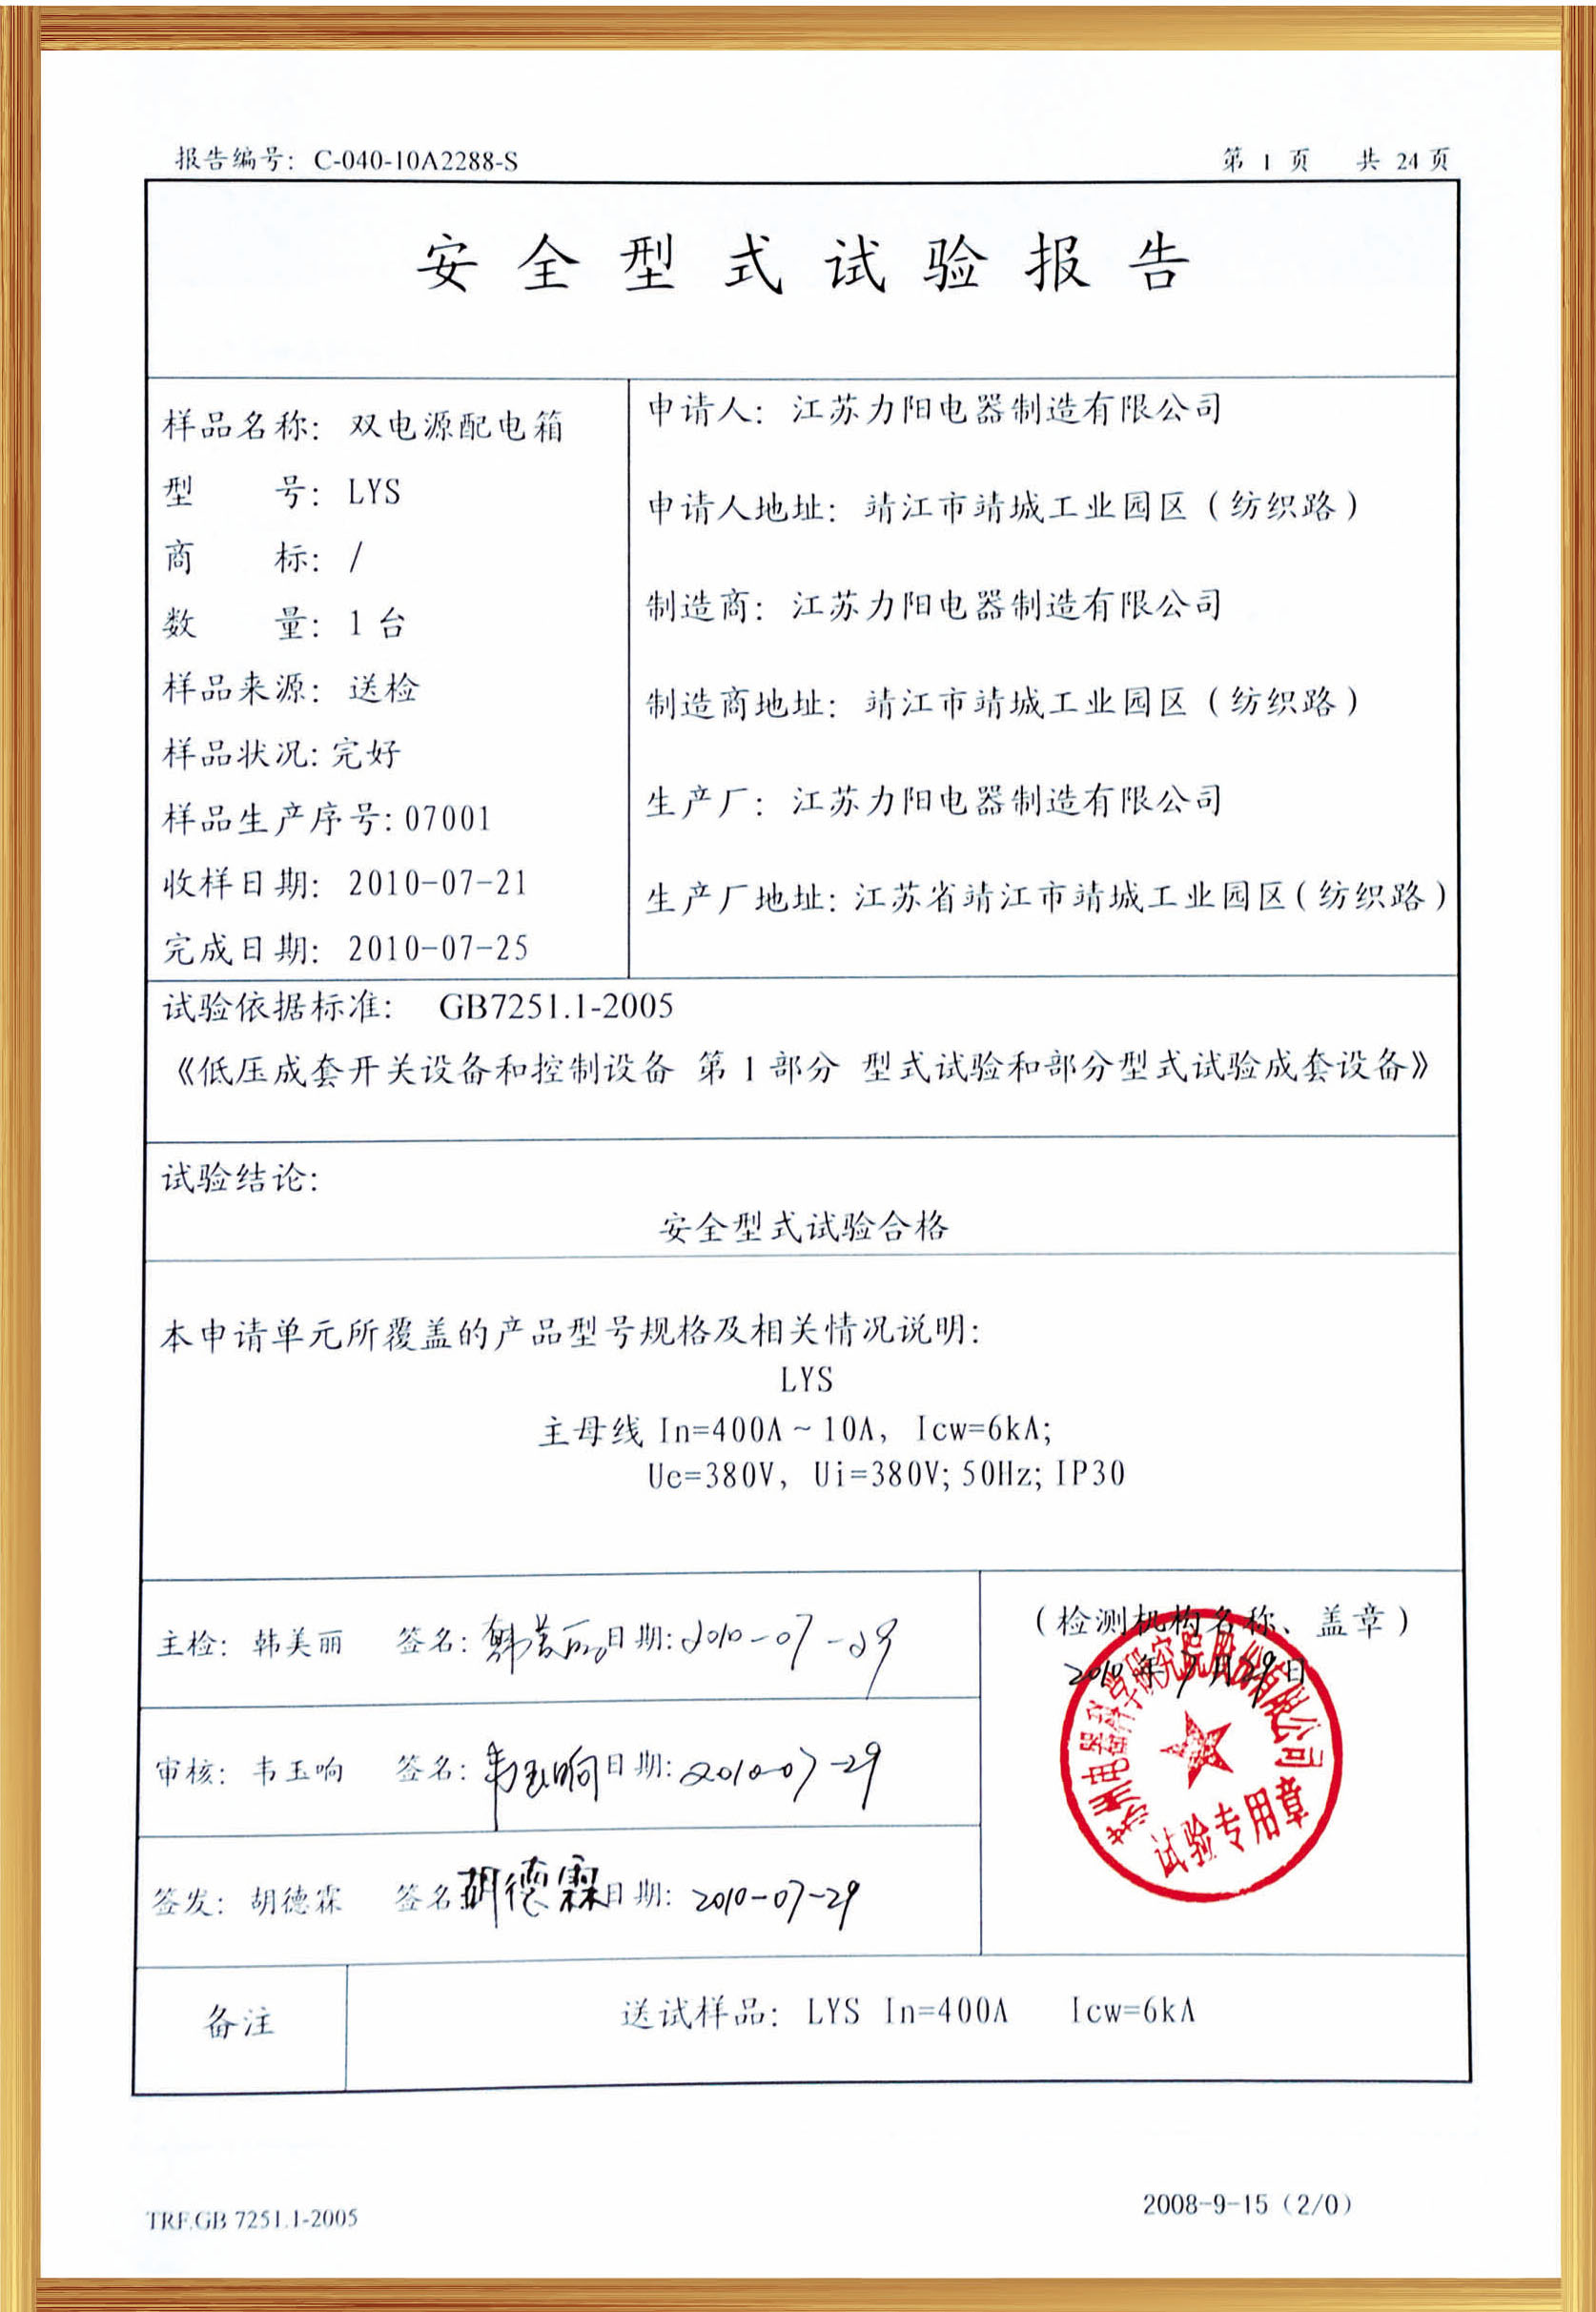 报告编号: C-040-10A2288-S 第 1 页 共 24 页
安全型式试验报告
样品名称: 双电源配电箱
型 号: LYS
商 标: /
数 量: 1 台
样品来源: 送检
样品状况: 完好
样品生产序号: 07001
收样日期: 2010-07-21
完成日期: 2010-07-25
申请人: 江苏力阳电器制造有限公司
申请人地址: 靖江市靖城工业园区(纺织路)
制造商: 江苏力阳电器制造有限公司
制造商地址: 靖江市靖城工业园区(纺织路)
生产厂: 江苏力阳电器制造有限公司
生产厂地址: 江苏省靖江市靖城工业园区(纺织路)
试验依据标准: GB7251.1-2005
《低压成套开关设备和控制设备 第 1 部分 型式试验和部分型式试验成套设备》
试验结论:
安全型式试验合格
本申请单元所覆盖的产品型号规格及相关情况说明:
LYS
主母线 In=400A~10A, Icw=6kA;
Ue=380V, Ui=380V; 50Hz; IP30
主检: 韩美丽 签名: 韩美丽 日期: 2010-07-29
审核: 韦玉响 签名: 韦玉响 日期: 2010-07-29
签发: 胡德霖 签名: 胡德霖 日期: 2010-07-29
(检测机构名称、盖章)
2010 年 7 月 29 日
苏州电器科学研究院股份有限公司
试验专用章
备注 送试样品: LYS In=400A Icw=6kA
TRF.GB 7251.1-2005 2008-9-15(2/0)